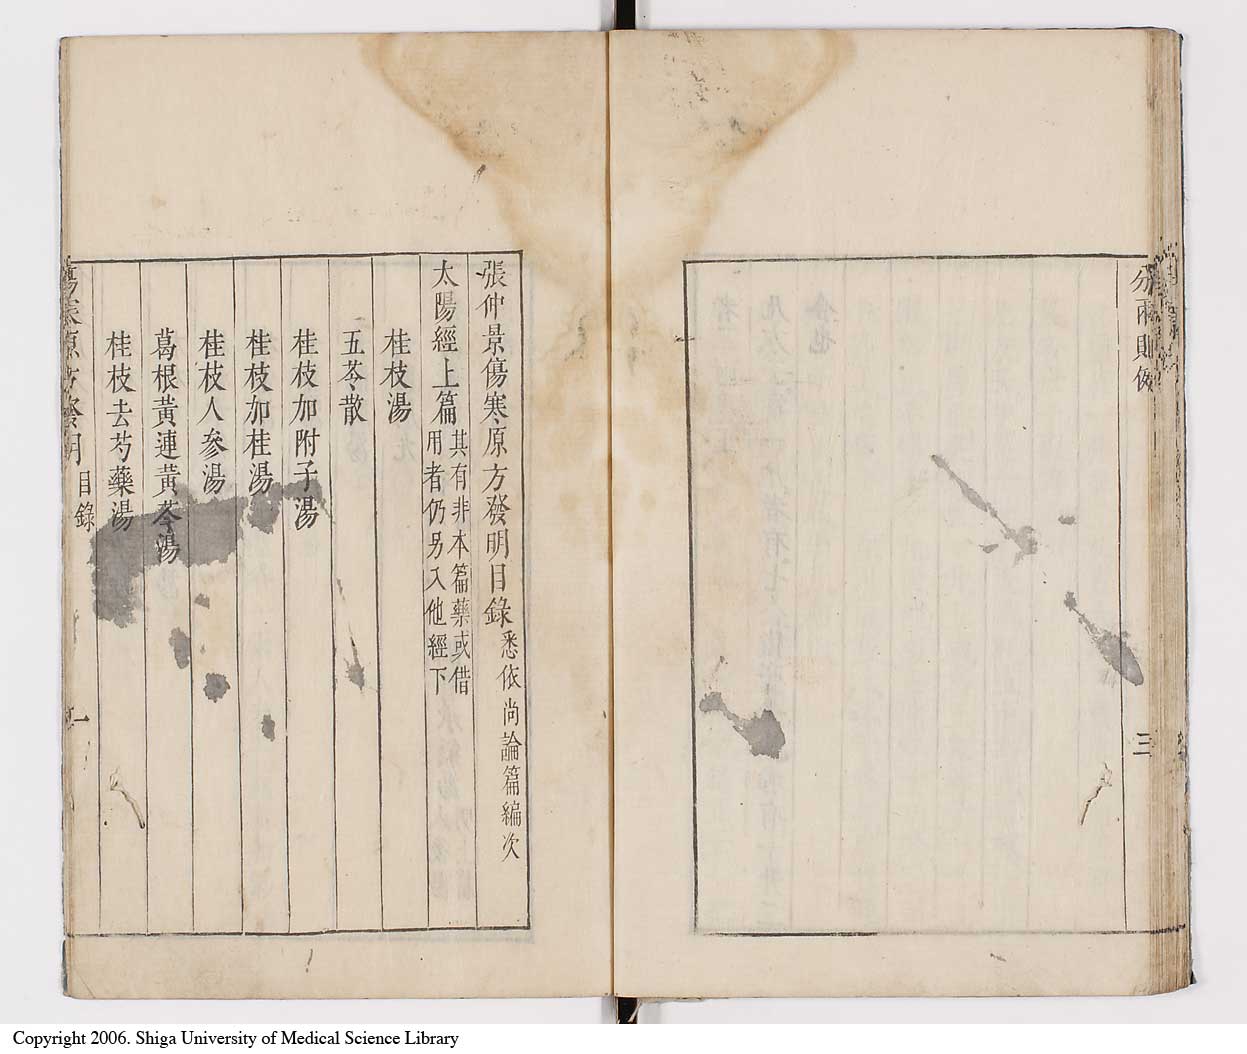 分兩則例
三
張仲景傷寒原方發明目錄悉依尚論篇編次
太陽經上篇其有非本篇藥或借
用者仍另入他經下
桂枝湯
五苓散
桂枝加附子湯
桂枝加桂湯
桂枝人參湯
葛根黃連黃芩湯
桂枝去芍藥湯
目錄
一
Copyright 2006. Shiga University of Medical Science Library